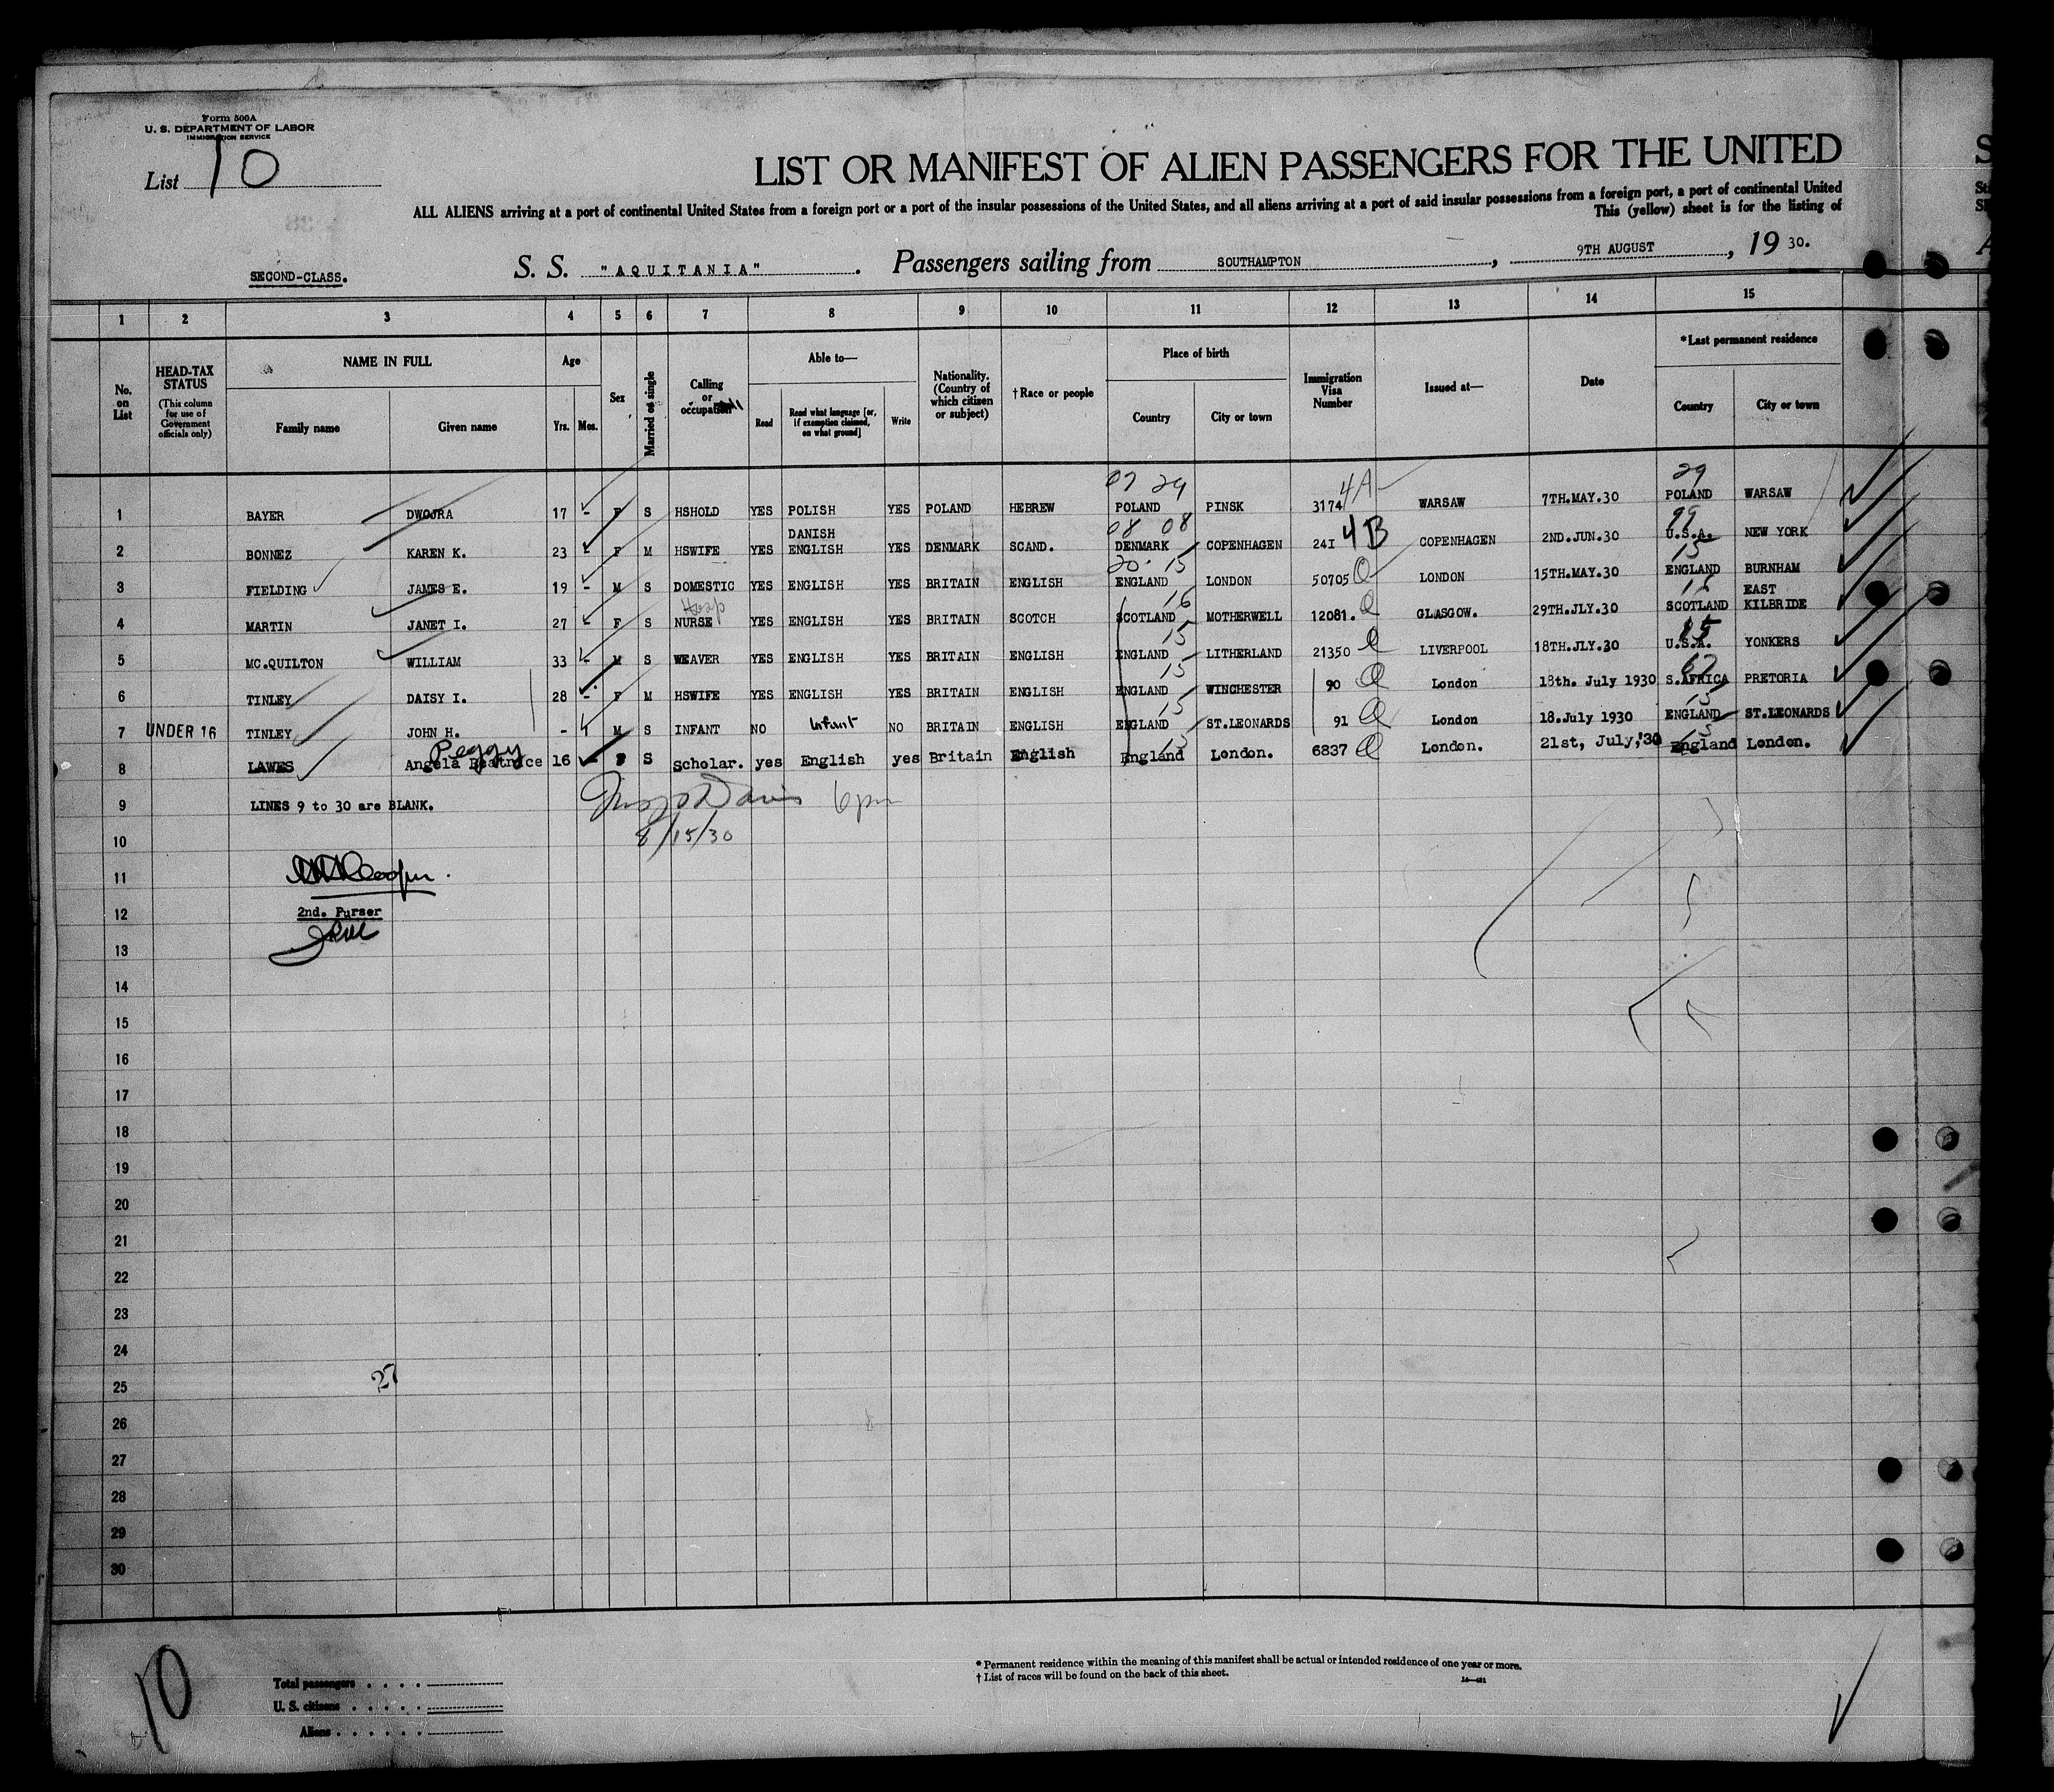 Form 500A
U. S. DEPARTMENT OF LABOR
IMMIGRATION SERVICE
List 10
LIST OR MANIFEST OF ALIEN PASSENGERS FOR THE UNITED
ALL ALIENS arriving at a port of continental United States from a foreign port or a port of the insular possessions of the United States, and all aliens arriving at a port of said insular possessions from a foreign port, a port of continental United
This (yellow) sheet is for the listing of
SECOND-CLASS.
S. S. "AQUITANIA". Passengers sailing from SOUTHAMPTON, 9TH AUGUST, 1930.
1 2 3 4 5 6 7 8 9 10 11 12 13 14 15
No. on List
HEAD-TAX STATUS
(This column for use of Government officials only)
NAME IN FULL
Family name Given name
Age
Yrs. Mos.
Sex
Married or single
Calling or occupation
Able to—
Read Read what language [or, if exemption claimed, on what ground] Write
Nationality. (Country of which citizen or subject)
† Race or people
Place of birth
Country City or town
Immigration Visa Number
Issued at—
Date
* Last permanent residence
Country City or town
07 29 4A 29
1 BAYER DWOJRA 17 - F S HSHOLD YES POLISH YES POLAND HEBREW POLAND PINSK 3174 WARSAW 7TH.MAY.30 POLAND WARSAW
DANISH 08 08 4B 99
2 BONNEZ KAREN K. 23 - F M HSWIFE YES ENGLISH YES DENMARK SCAND. DENMARK COPENHAGEN 241 COPENHAGEN 2ND.JUN.30 U.S.A. NEW YORK
20 15 Q 15
3 FIELDING JAMES E. 19 - M S DOMESTIC YES ENGLISH YES BRITAIN ENGLISH ENGLAND LONDON 50705 LONDON 15TH.MAY.30 ENGLAND BURNHAM
Hosp 16 Q EAST
4 MARTIN JANET I. 27 - F S NURSE YES ENGLISH YES BRITAIN SCOTCH SCOTLAND MOTHERWELL 12081. GLASGOW. 29TH.JLY.30 SCOTLAND KILBRIDE
15 Q
5 MC.QUILTON WILLIAM 33 - M S WEAVER YES ENGLISH YES BRITAIN ENGLISH ENGLAND LITHERLAND 21350 LIVERPOOL 18TH.JLY.30 U.S.A. YONKERS
15 Q 62
6 TINLEY DAISY I. 28 - F M HSWIFE YES ENGLISH YES BRITAIN ENGLISH ENGLAND WINCHESTER 90 London 18th. July 1930 S.AFRICA PRETORIA
15 Q 15
7 UNDER 16 TINLEY JOHN H. - 4 M S INFANT NO Infant NO BRITAIN ENGLISH ENGLAND ST.LEONARDS 91 London 18.July 1930 ENGLAND ST.LEONARDS
Peggy 15 Q 15
8 LAWES Angela Beatrice 16 - F S Scholar. yes English yes Britain English England London. 6837 London. 21st, July,'30 England London.
9 LINES 9 to 30 are BLANK. 6 pm
10 8/15/30
11
12 2nd. Purser
13
14
15
16
17
18
19
20
21
22
23
24
25 27
26
27
28
29
30
10
Total passengers
U. S. citizens
Aliens
* Permanent residence within the meaning of this manifest shall be actual or intended residence of one year or more.
† List of races will be found on the back of this sheet.